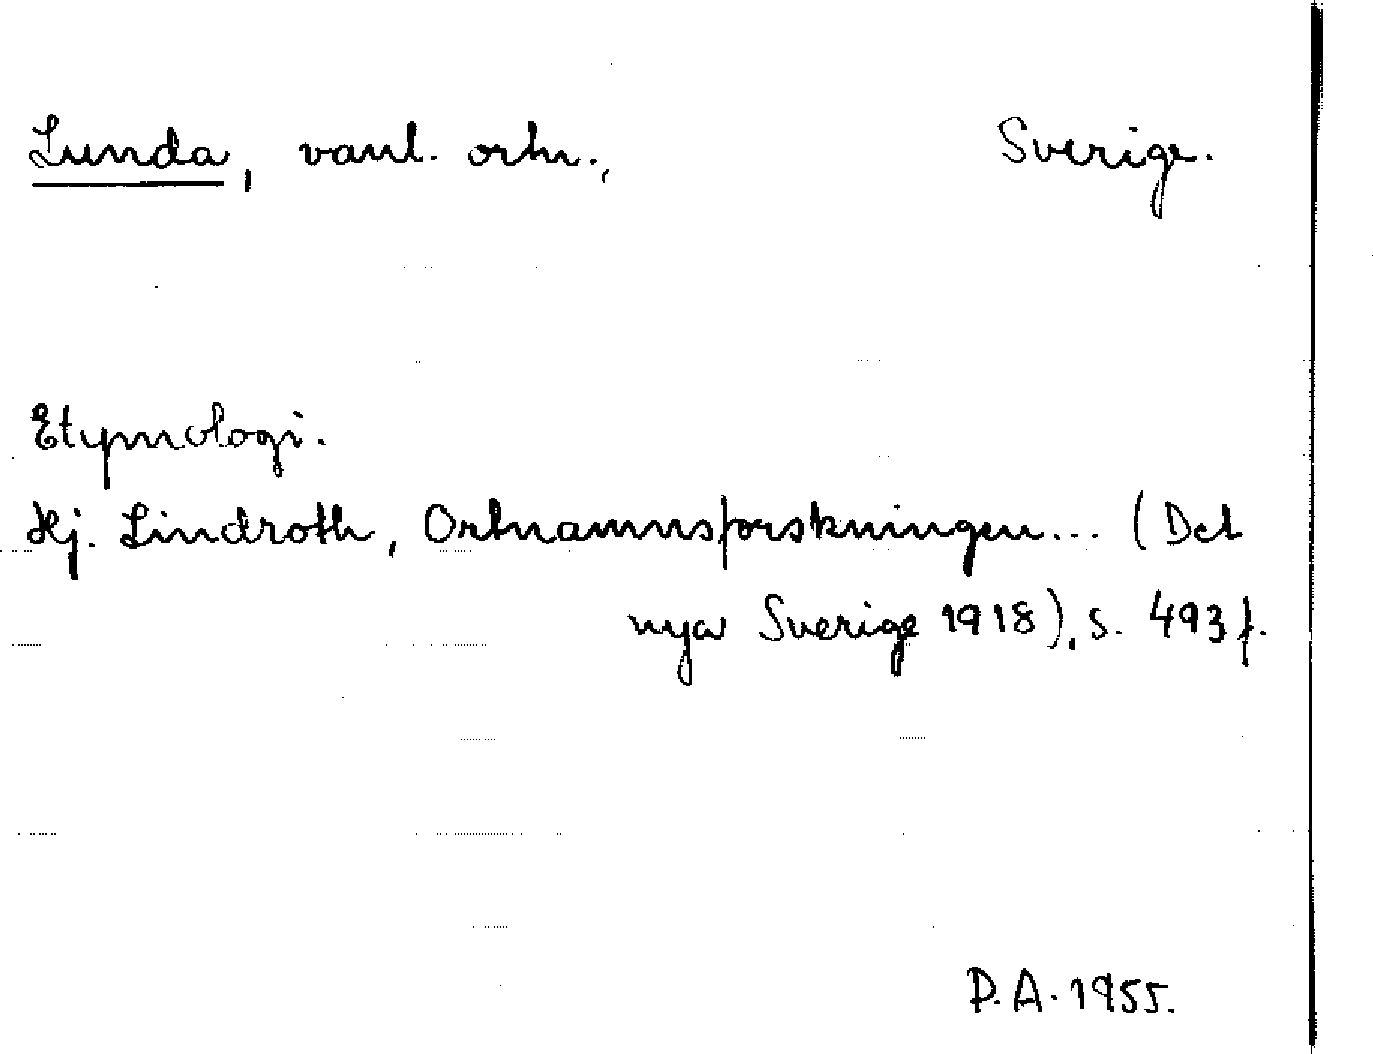 Lunda, vanl. ortn., Sverige.
Etymologi.
Hj. Lindroth, Ortnamnsforskningen... (Det
nya Sverige 1918), s. 493 f.
P.A. 1955.